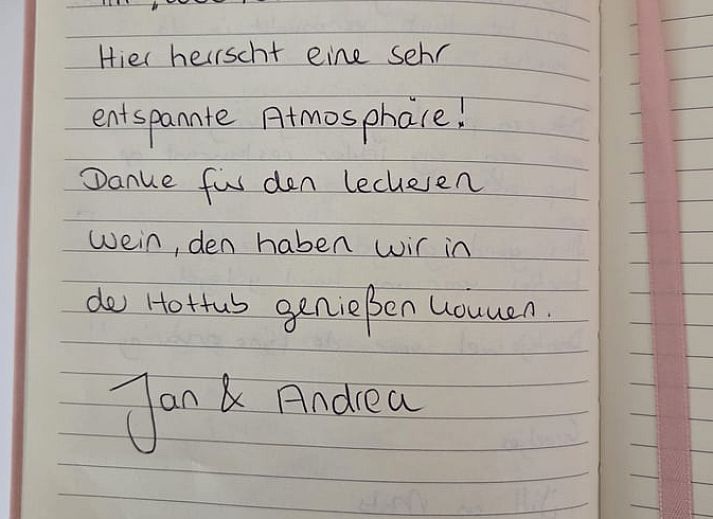 Hier herrscht eine sehr
entspannte Atmosphäre!
Danke für den leckeren
Wein, den haben wir in
der Hottub genießen können.
Jan & Andrea